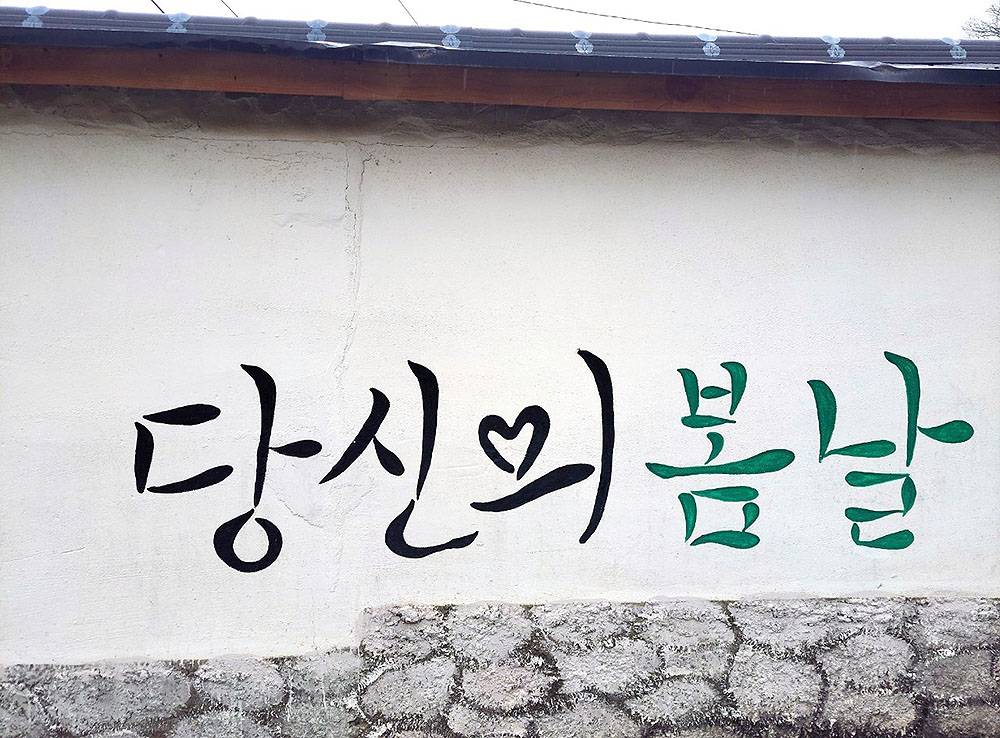 당신의 봄날